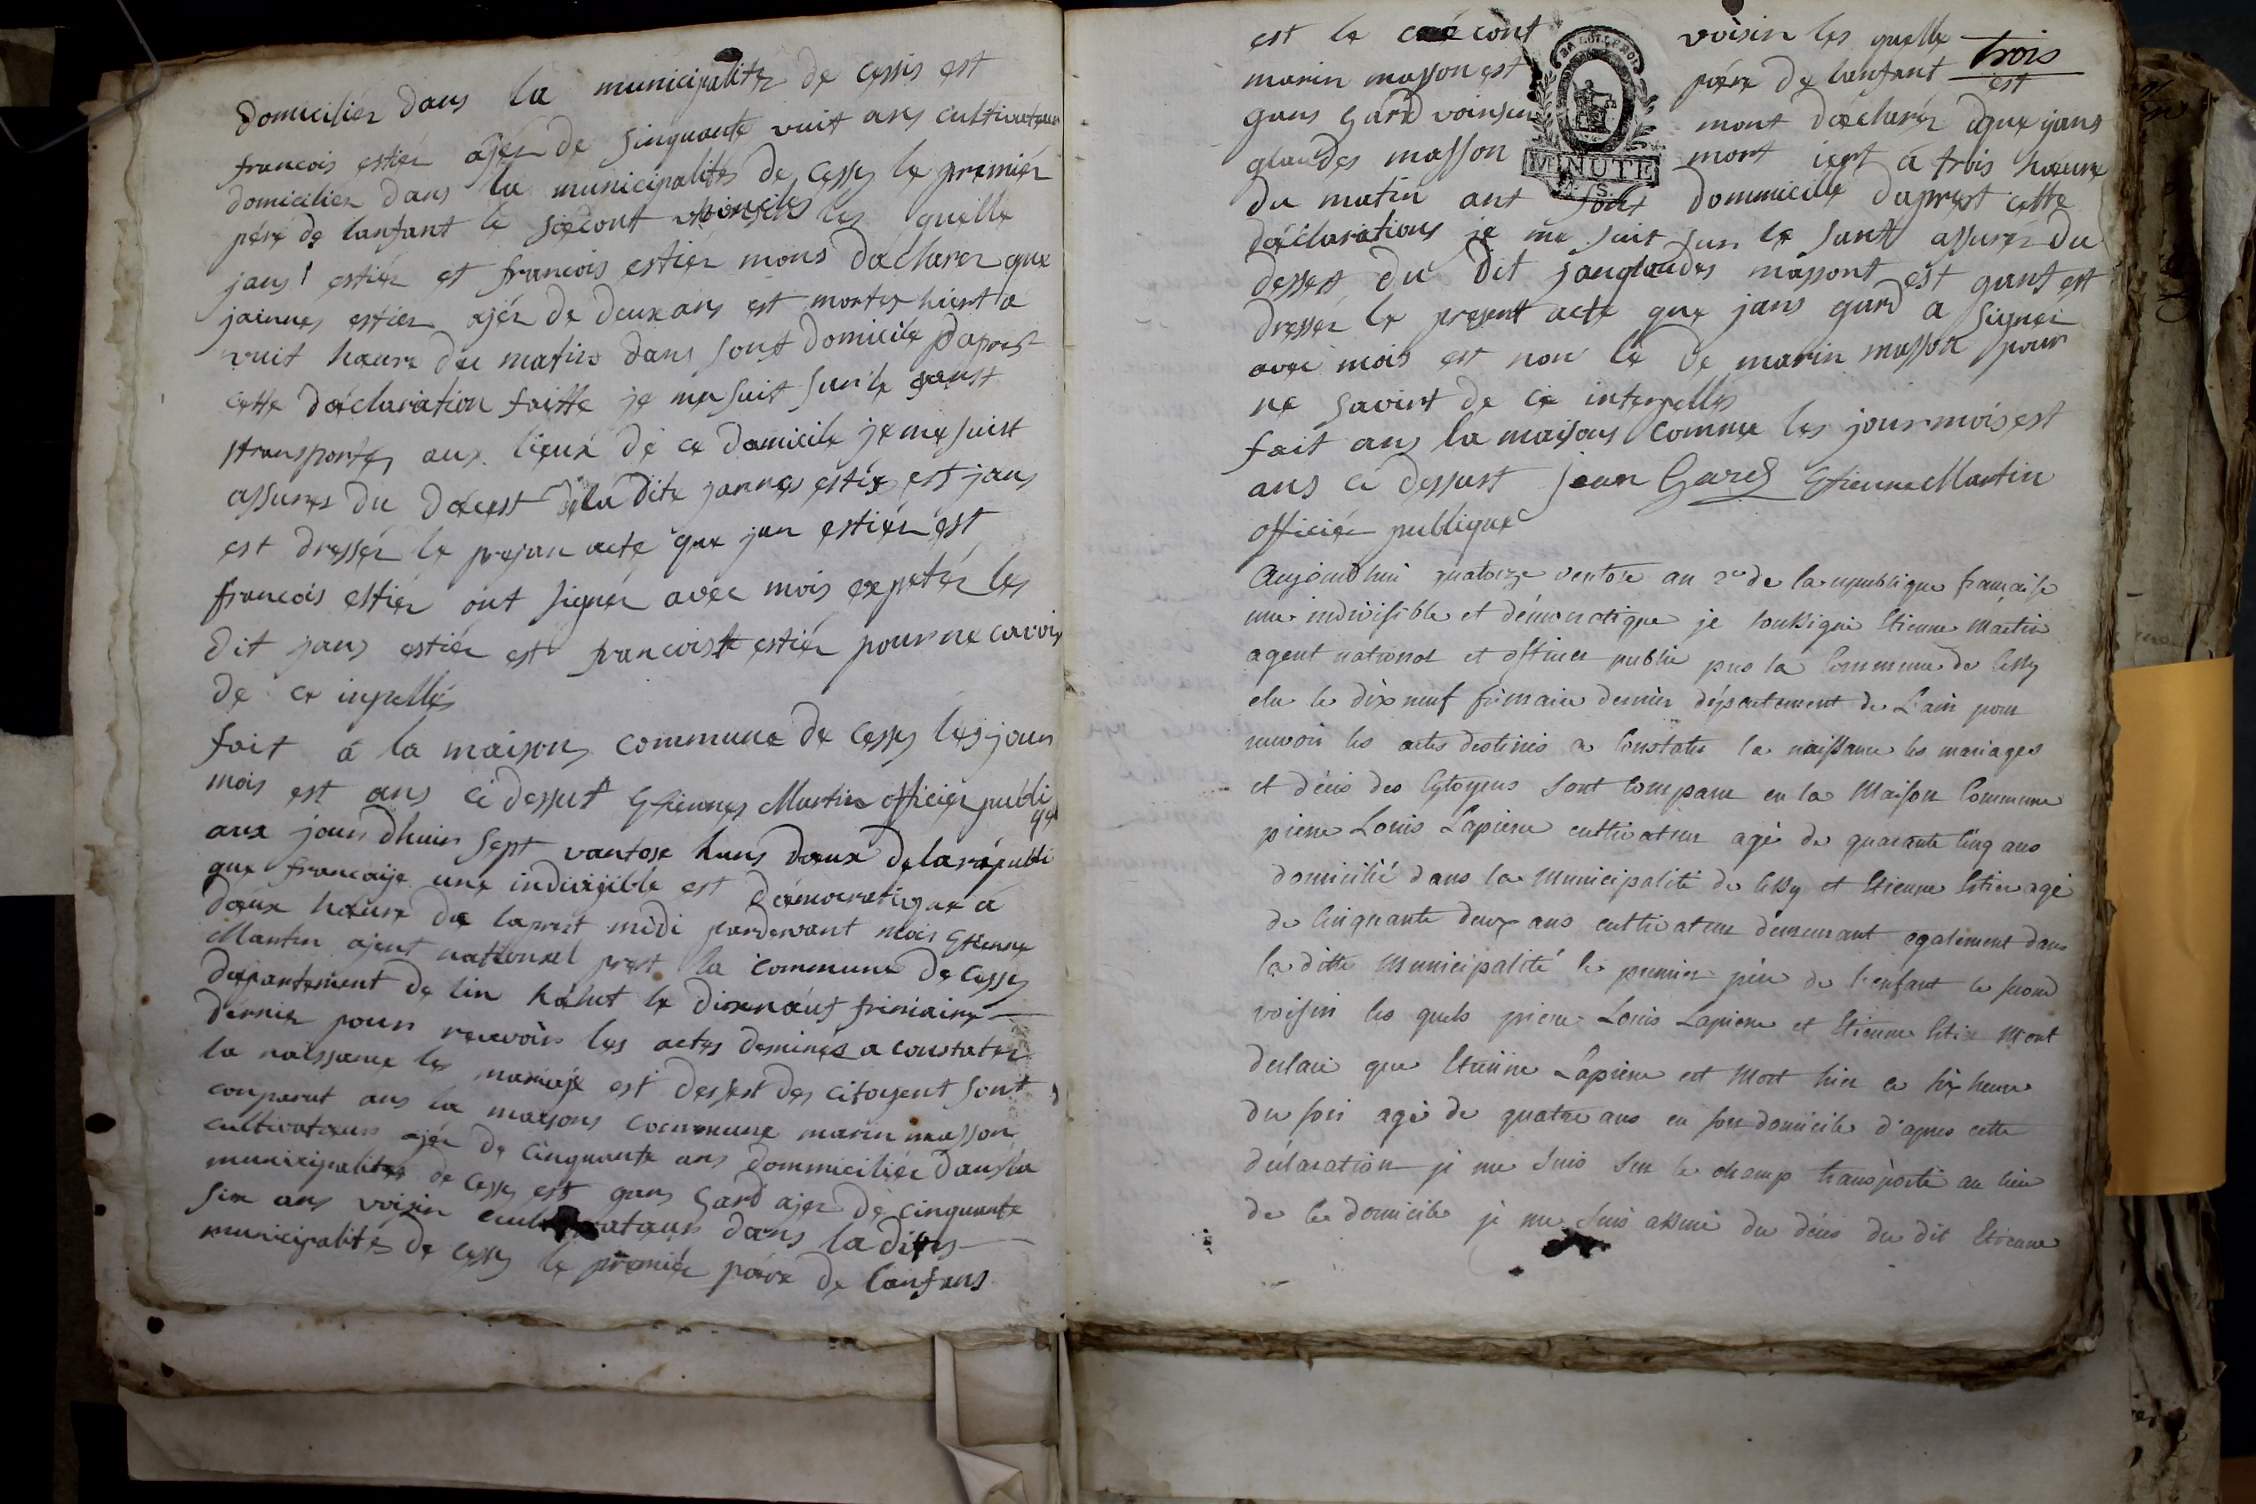 domiciliér dans la municipalitér de cessis est
francois estiér ajér de sinquante vuit ans cultivateur
domiciliér dans la municipalités de cessy le premiér
pére de lanfant le sœcont les quelle
jans estiér et francois estiér mons dæclarer que
jainnes estiér ajér de deux ans est mortes hiert a
vuit hæure du matin dans sont domicile daprest
cette dæclaration faitte je me suit sur le
transportéz aux lieux de ce domicile je me suist
assurer du dæcest de la dite jannes estiér est jans
est dressér le prejan acte que jan estiér est
francois estiér ont signér avec mois les
dit jans estiér est francois estiér pour ne cavoir
de ce inpellés
fait á la maisons commune de cessy les jours
mois est ans ci dessut Etiennes Martin officier publi
que
aux jour dhuis sept vantose lans daux de la republi
que francaije une indivijible est dæmocratique a
daux hæure de laprest midi pardevant mois Etienne
Martin ajent nationael prest la commune de cessy
dæpartement de lin hælut le dixnæuf frimaire
dérnier pour recevoir les actes deminés a constater
la naissance les mariaje est dessest des citoyent sont
conparut ans la maisons commune marin masson
cultivatæur ajér de cinquante ans dommiciliér dans la
municipalités de cessy est gans Gard ajér de cinquante
six ans voisin dans la dites
municipalités de cessy le premiér pære de lanfans
est le cont voisin les quelle trois
marin masson est pére de lanfant est
gans gard voinsin mont dæclarér que jans
glaudes masson mort iert á trois hæure
MINUTE
du matin ant sont dommicille daprest cette
dæclarations je me suit sur le sant assurer du
dessest du dit janglaudes massont est gant est
dressér le present acte que jans gard a signér
avec mois est non le de marin masson pour
ne savoirt de ce interpellés
fait ans la maisons comme les jour mois est
ans ci dessust Jean Gard Etienne Martin
officiér publique
Aujourdhui quatorze ventose an 2e de la republique française
une indivisible et démocratique je soussigné Etienne Martin
agent national et officier public pres la Commune de Cessy
elu le dix neuf frimaire dernier département de L'ain pour
recevoir les actes destinés a Constater la naissance les mariages
et décés des Cytoyens sont Comparu en la Maison Commune
pierre Louis Lapierre cultivateur agé de quarante Cinq ans
domicilié dans la Municipalité de Cessy et Etienne Estier agé
de Cinquante deux ans cultivateur demeurant egalement dans
la ditte Municipalité le premier pére de l'enfant le second
voisin les quels pierre Louis Lapierre et Etienne Estier Mont
declaré que Etienne Lapierre est Mort hier a six heure
du soir agé de quatre ans en son domicile d'apres cette
déclaration je me suis sur le champ transporté au lieu
de ce domicile je me suis assuré du décés du dit Etienne